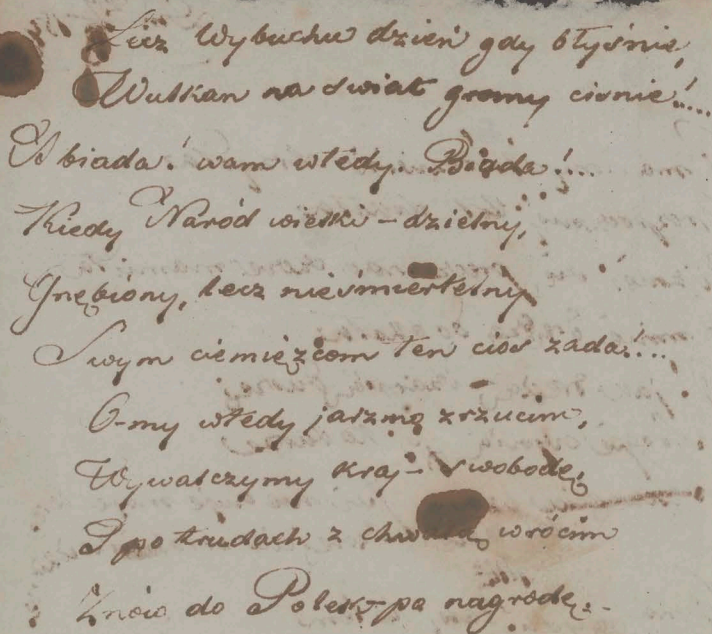 Lecz Wybuchu dzień gdy błyśnie,
Wulkan na swiat gromy cisnie!....
O biada! wam wtedy. Biada!...
Kiedy Naród wielki – dzielny,
Gnębiony, lecz nieśmiertelny
Swym ciemięzcom ten cios zada!...
O-my wtedy jarzmo zrzucim,
Wywalczymy kraj – swobodę,
I po trudach z chwałą wrócim
Znów do Polek – po nagrodę.-